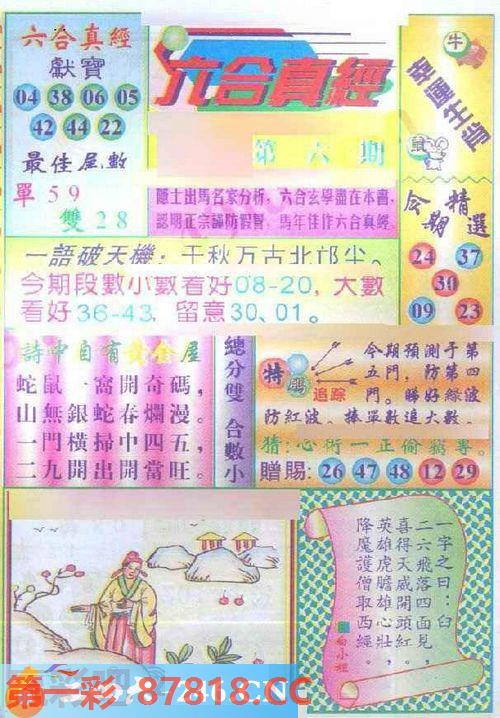 六合真經
獻寶
04 38 06 05
42 44 22
最佳尾數
單59
雙28
六合真經
第六期
隱士出馬名家分析，六合玄學盡在本書，
認明正宗謹防假冒，馬年佳作六合真經
牛
幸運生肖
鼠
今期精選
24 37
30
09 23
一語破天機：千秋万古北邙尘。
今期段數小數看好08-20，大數
看好36-43，留意30、01。
詩中自有黃金屋
蛇鼠一窩開奇碼，
山無銀蛇春爛漫。
一門橫掃中四五，
二九開出開當旺。
總分雙 合數小
特碼
追踪
今期預測于第
五門，防第四
門。睇好綠波
防紅波。捧單數追大數。
猜：心術一正偷窩專。
贈賜：26 47 48 12 29
一字之曰：臼
二六飛落四面見，
喜得天威開頭紅，
英雄虎膽雄心壯，
降魔護僧取西經。
白小姐
第一彩 87818.CC
246.CN